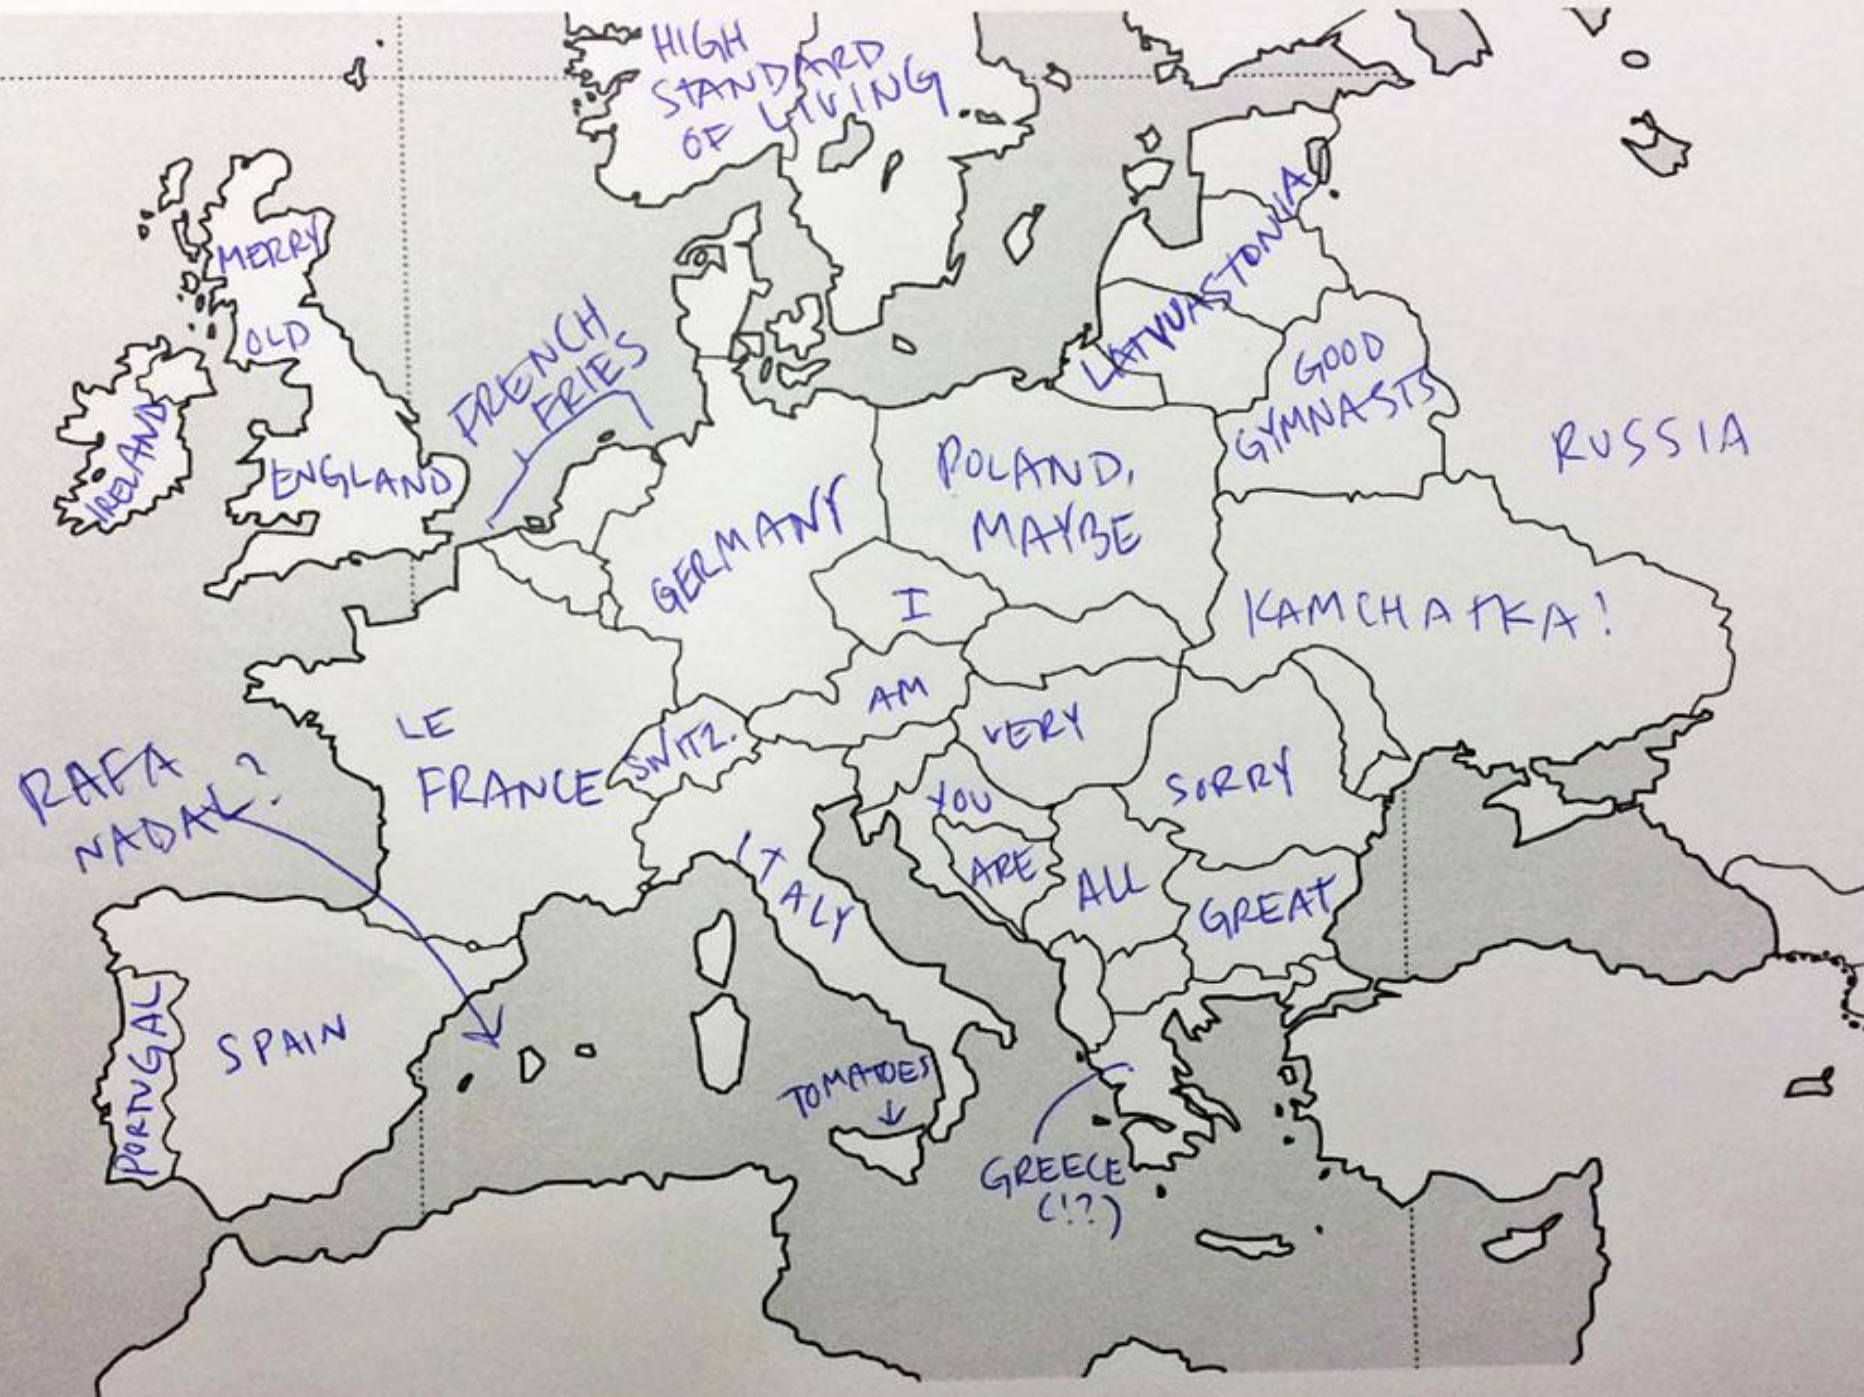 HIGH
STANDARD
OF LIVING
MERRY
OLD
ENGLAND
IRELAND
FRENCH
FRIES
LATVUASTONIA
GOOD
GYMNASTS
RUSSIA
POLAND,
MAYBE
GERMANY
KAMCHATKA!
I
AM
VERY
SORRY
YOU
ARE
ALL
GREAT
LE
FRANCE
SWITZ.
ITALY
RAFA
NADAL?
PORTUGAL
SPAIN
TOMATOES
GREECE
(!?)